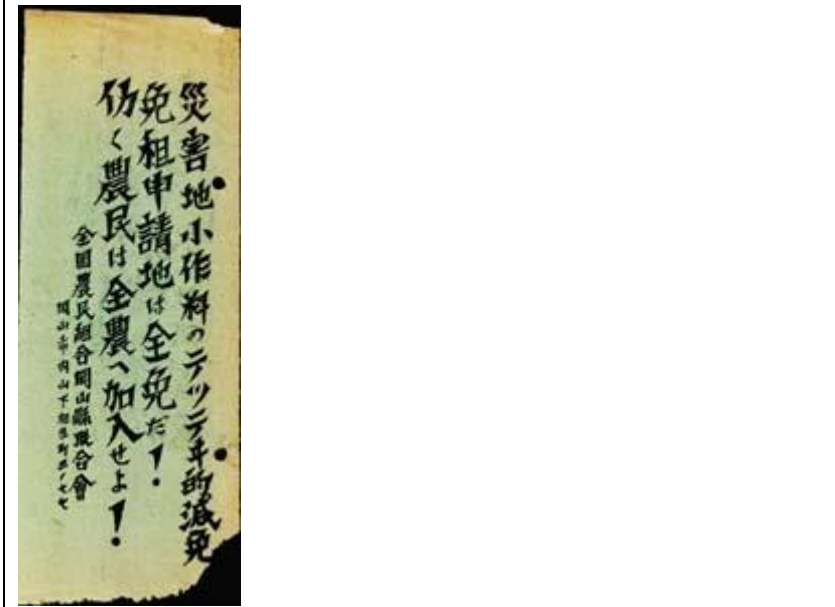 災害地小作料のテッテヰ的減免
免租申請地は全免だ!
仂く農民は全農へ加入せよ!
全国農民組合岡山縣聯合會
岡山市内山下